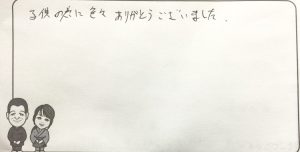 子供の為に色々ありがとうございました。